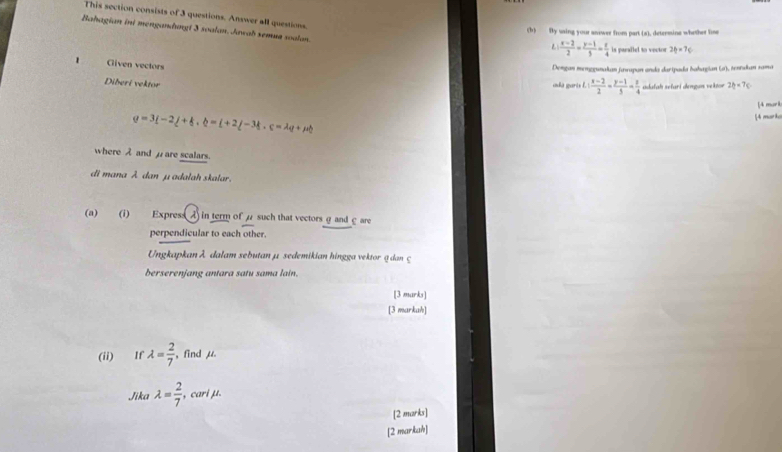 This section consists of 3 questions. Answer all questions.
Bahagian ini mengandungi 3 soalan. Jawab semua soalan.
1 Given vectors
Diberi vektor
a = 3i − 2j + k, b = i + 2j − 3k, c = λa + μb
where λ and μ are scalars.
di mana λ dan μ adalah skalar.
(a) (i) Express λ in term of μ such that vectors a and c are
perpendicular to each other.
Ungkapkan λ dalam sebutan μ sedemikian hingga vektor a dan c
berserenjang antara satu sama lain.
[3 marks]
[3 markah]
(ii) If λ = 2/7, find μ.
Jika λ = 2/7, cari μ.
[2 marks]
[2 markah]
(b) By using your answer from part (a), determine whether line
L: (x−2)/2 = (y−1)/5 = z/4 is parallel to vector 2b + 7c.
Dengan menggunakan jawapan anda daripada bahagian (a), tentukan sama
ada garis L: (x−2)/2 = (y−1)/5 = z/4 adalah selari dengan vektor 2b + 7c.
[4 mark
[4 marka